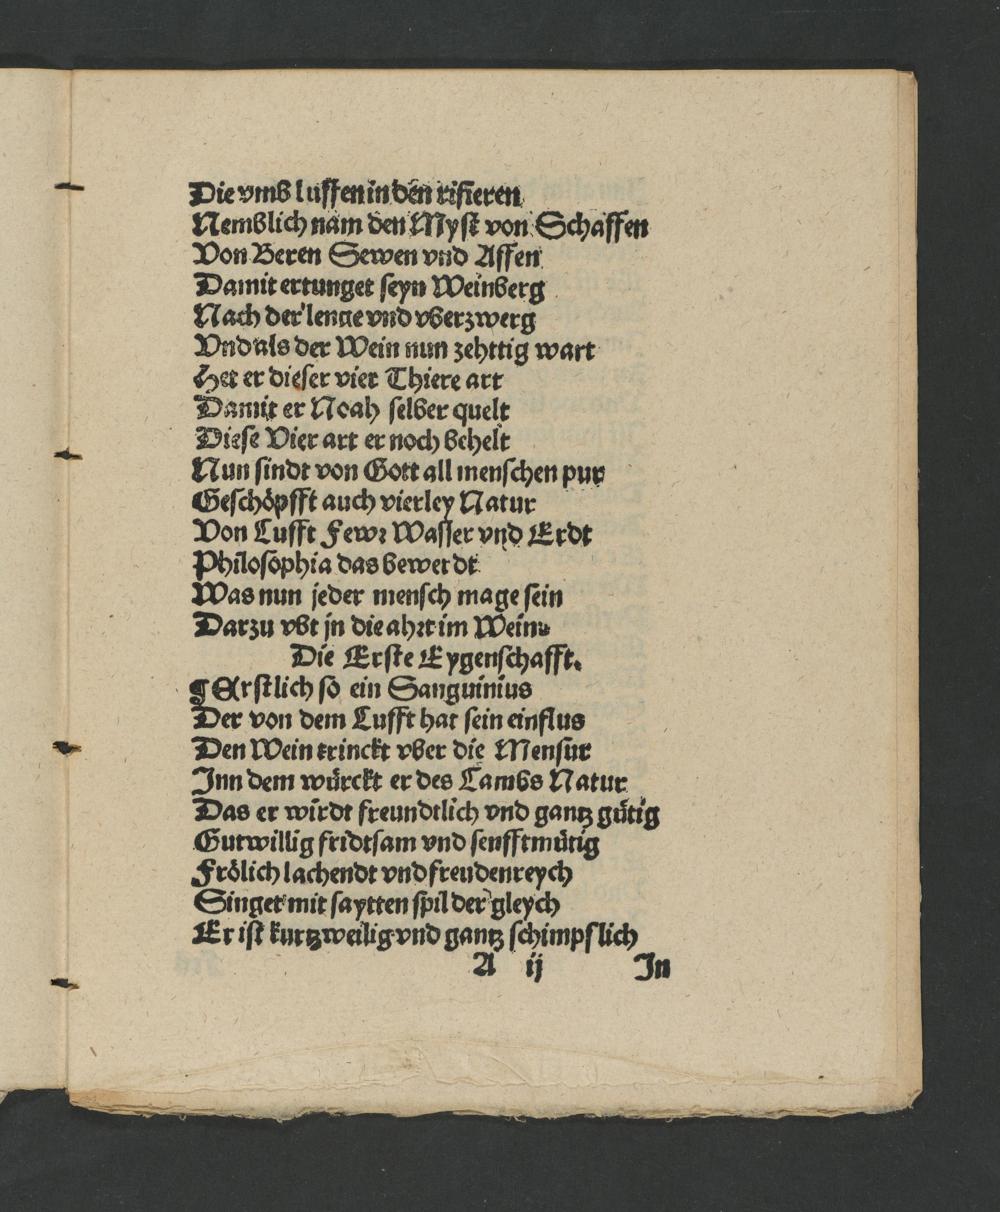 Die vmb luffen in den rifieren
Nemblich nam den Myst von Schaffen
Von Beren Sewen vnd Affen
Damit ertunget seyn Weinberg
Nach der lenge vnd vberzwerg
Vnd als der Wein nun zehttig wart
Het er dieser vier Thiere art
Damit er Noah selber quelt
Diese Vier art er noch behelt
Nun sindt von Gott all menschen pur
Geschöpfft auch vierley Natur
Von Lufft Fewr Wasser vnd Erdt
Philosophia das bewerdt
Was nun jeder mensch mage sein
Darzu vbt jn die ahrt im Wein.
Die Erste Eygenschafft.
¶ Erstlich so ein Sanguinius
Der von dem Lufft hat sein einflus
Den Wein trinckt vber die Mensur
Inn dem würckt er des Lambs Natur
Das er wirdt freundtlich vnd gantz gütig
Gutwillig fridtsam vnd senfftmütig
Frölich lachendt vnd freudenreych
Singet mit saytten spil der gleych
Er ist kurtzweilig vnd gantz schimpflich
A ij In